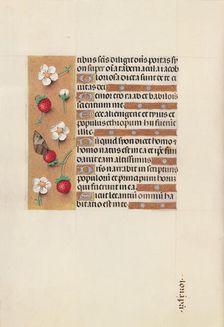 tibus scis diligit dns portas sy
on super oīa tabernacula iacob
Gloriosa dicta sunt de te ci
uitas dei
Memor ero raab et babilōis
scientium me
Ecce alienigene et tirus et
populus ethiopum hii fuerūt
illic
Nunquid syon dicet homo et
homo natus est in ea et ipse fū
dauit eam altissimus
Dns narrabit in scripturis
populorū et principum horū
qui fuerunt in ea
Sicut letantium omniū ha
bitatio est in te